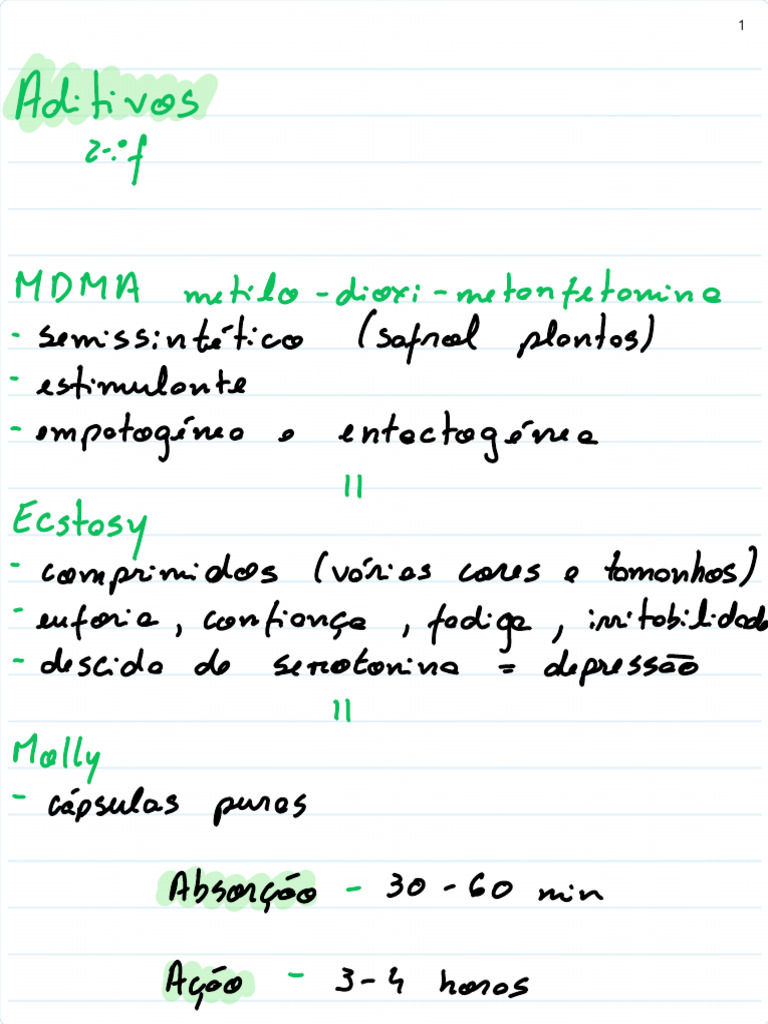 1
Aditivos
MDMA metilo-dioxi-metanfetamina
- semissintético (safrol plantas)
- estimulante
- empatogéneo e entactogénea
||
Ecstasy
- comprimidos (várias cores e tamanhos)
- euforia, confiança, fadiga, irritabilidade
- descida de serotonina = depressão
||
Molly
- cápsulas puras
Absorção - 30-60 min
Ação - 3-4 horas